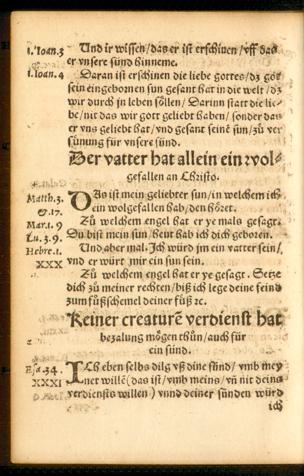 1. Ioan. 3 Und ir wissen/das er ist erschinen/vff das
er vnsere sünd hinneme.
1. Ioan. 4 Daran ist erschinen die liebe gottes/dz gott
sein eingebornen sun gesant hat in die welt/dz
wir durch jn leben söllen/Darinn statt die lie-
be/nit das wir gott geliebt haben/sonder das
er vns geliebt hat/vnd gesant seinē sun/zů ver
sünung für vnsere sünd.
Der vatter hat allein ein wol-
gefallen an Christo.
Matth. 3. DAs ist mein geliebter sun/in welchem ich
& 17. ein wolgefallen hab/den höret.
Mar. 1. 9 Zů welchem engel hat er ye mals gesagt.
Lu. 3. 9. Du bist mein sun/heut hab ich dich geboren.
Hebre. 1. Und aber mal. Ich würd jm ein vatter sein/
XXX vnd er würt mir ein sun sein.
Zů welchem engel hat er ye gesagt. Setze
dich zů meiner rechten/biß ich lege deine feind
zum fůßschemel deiner füß ꝛc.
Keiner creaturē verdienst hat
bezalung mögen thůn/auch für
ein sünd.
Esa. 34. ICh eben selbs dilg vß dine sünd/vmb mey
XXXI ner willē(das ist/vmb meins/vn̄ nit deins
verdiensts willen)vnnd deiner sünden würd
ich